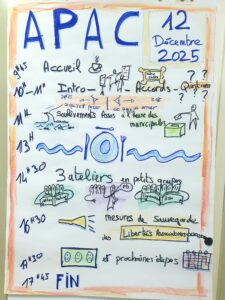 APAC
12
Décembre
2025
9h45 Accueil
10h - 11h Intro - Accords - Questions
? ? ? ?
11h Soulèvements
municipales
13h
14h30 3 ateliers en petits groupes
16h30 mesures de Sauvegarde
des Libertés Associatives
17h30 et prochaines étapes
17h45 FIN